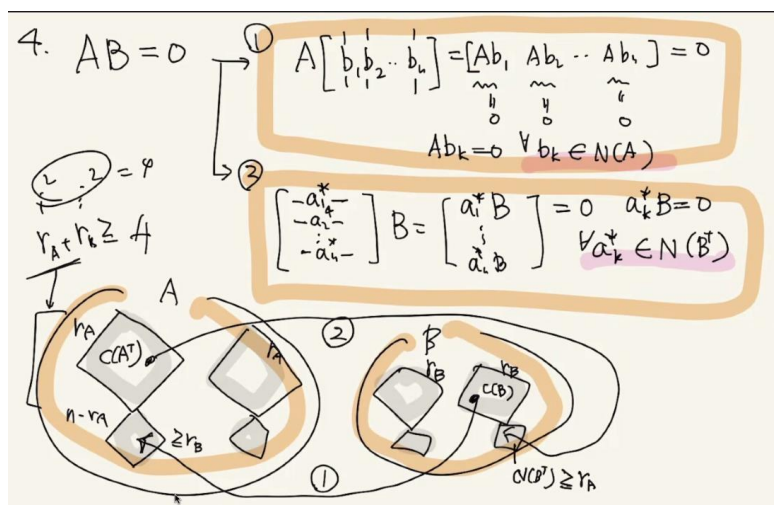 4. AB = 0
① A [ b₁ b₂ ·· bₙ ] = [Ab₁ Ab₂ ·· Abₙ] = 0
0 0 0
Abₖ = 0 ∀ bₖ ∈ N(A)
② [ -a₁*- -a₂*- ⋮ -aₙ*- ] B = [ a₁*B ⋮ aₙ*B ] = 0 aₖ*B = 0
∀aₖ* ∈ N(Bᵀ)
2 2 = 4
r_A + r_B ≥ 4
A
r_A
C(Aᵀ)
r_A
n-r_A
≥ r_B
②
B
r_B
r_B
C(B)
①
N(Bᵀ) ≥ r_A